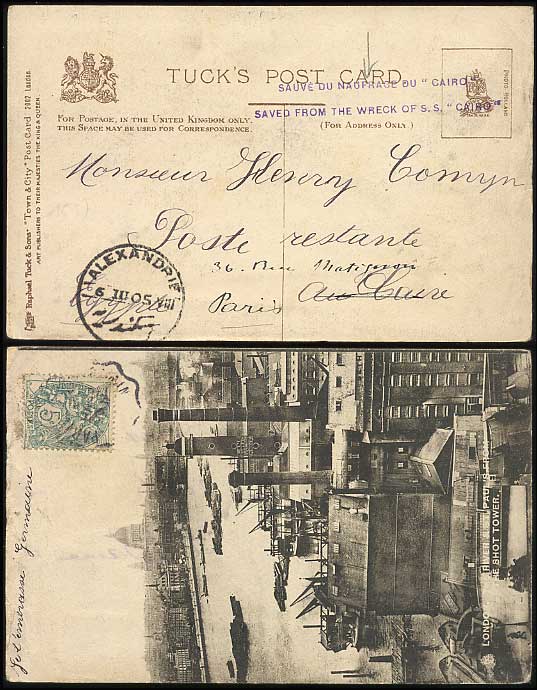 TUCK'S POST CARD
SAUVÉ DU NAUFRAGE DU "CAIRO"
SAVED FROM THE WRECK OF S.S. "CAIRO"
FOR POSTAGE, IN THE UNITED KINGDOM ONLY,
THIS SPACE MAY BE USED FOR CORRESPONDENCE.
(FOR ADDRESS ONLY.)
Raphael Tuck & Sons' "Town & City" Post Card 2002 London.
ART PUBLISHERS TO THEIR MAJESTIES THE KING & QUEEN.
Monsieur Henry Comyn
Poste restante
36. Rue Matignon
au Caire
Paris
ALEXANDRIE
6 III 05
Je t'embrasse Germaine
5
LONDON
THE SHOT TOWER.